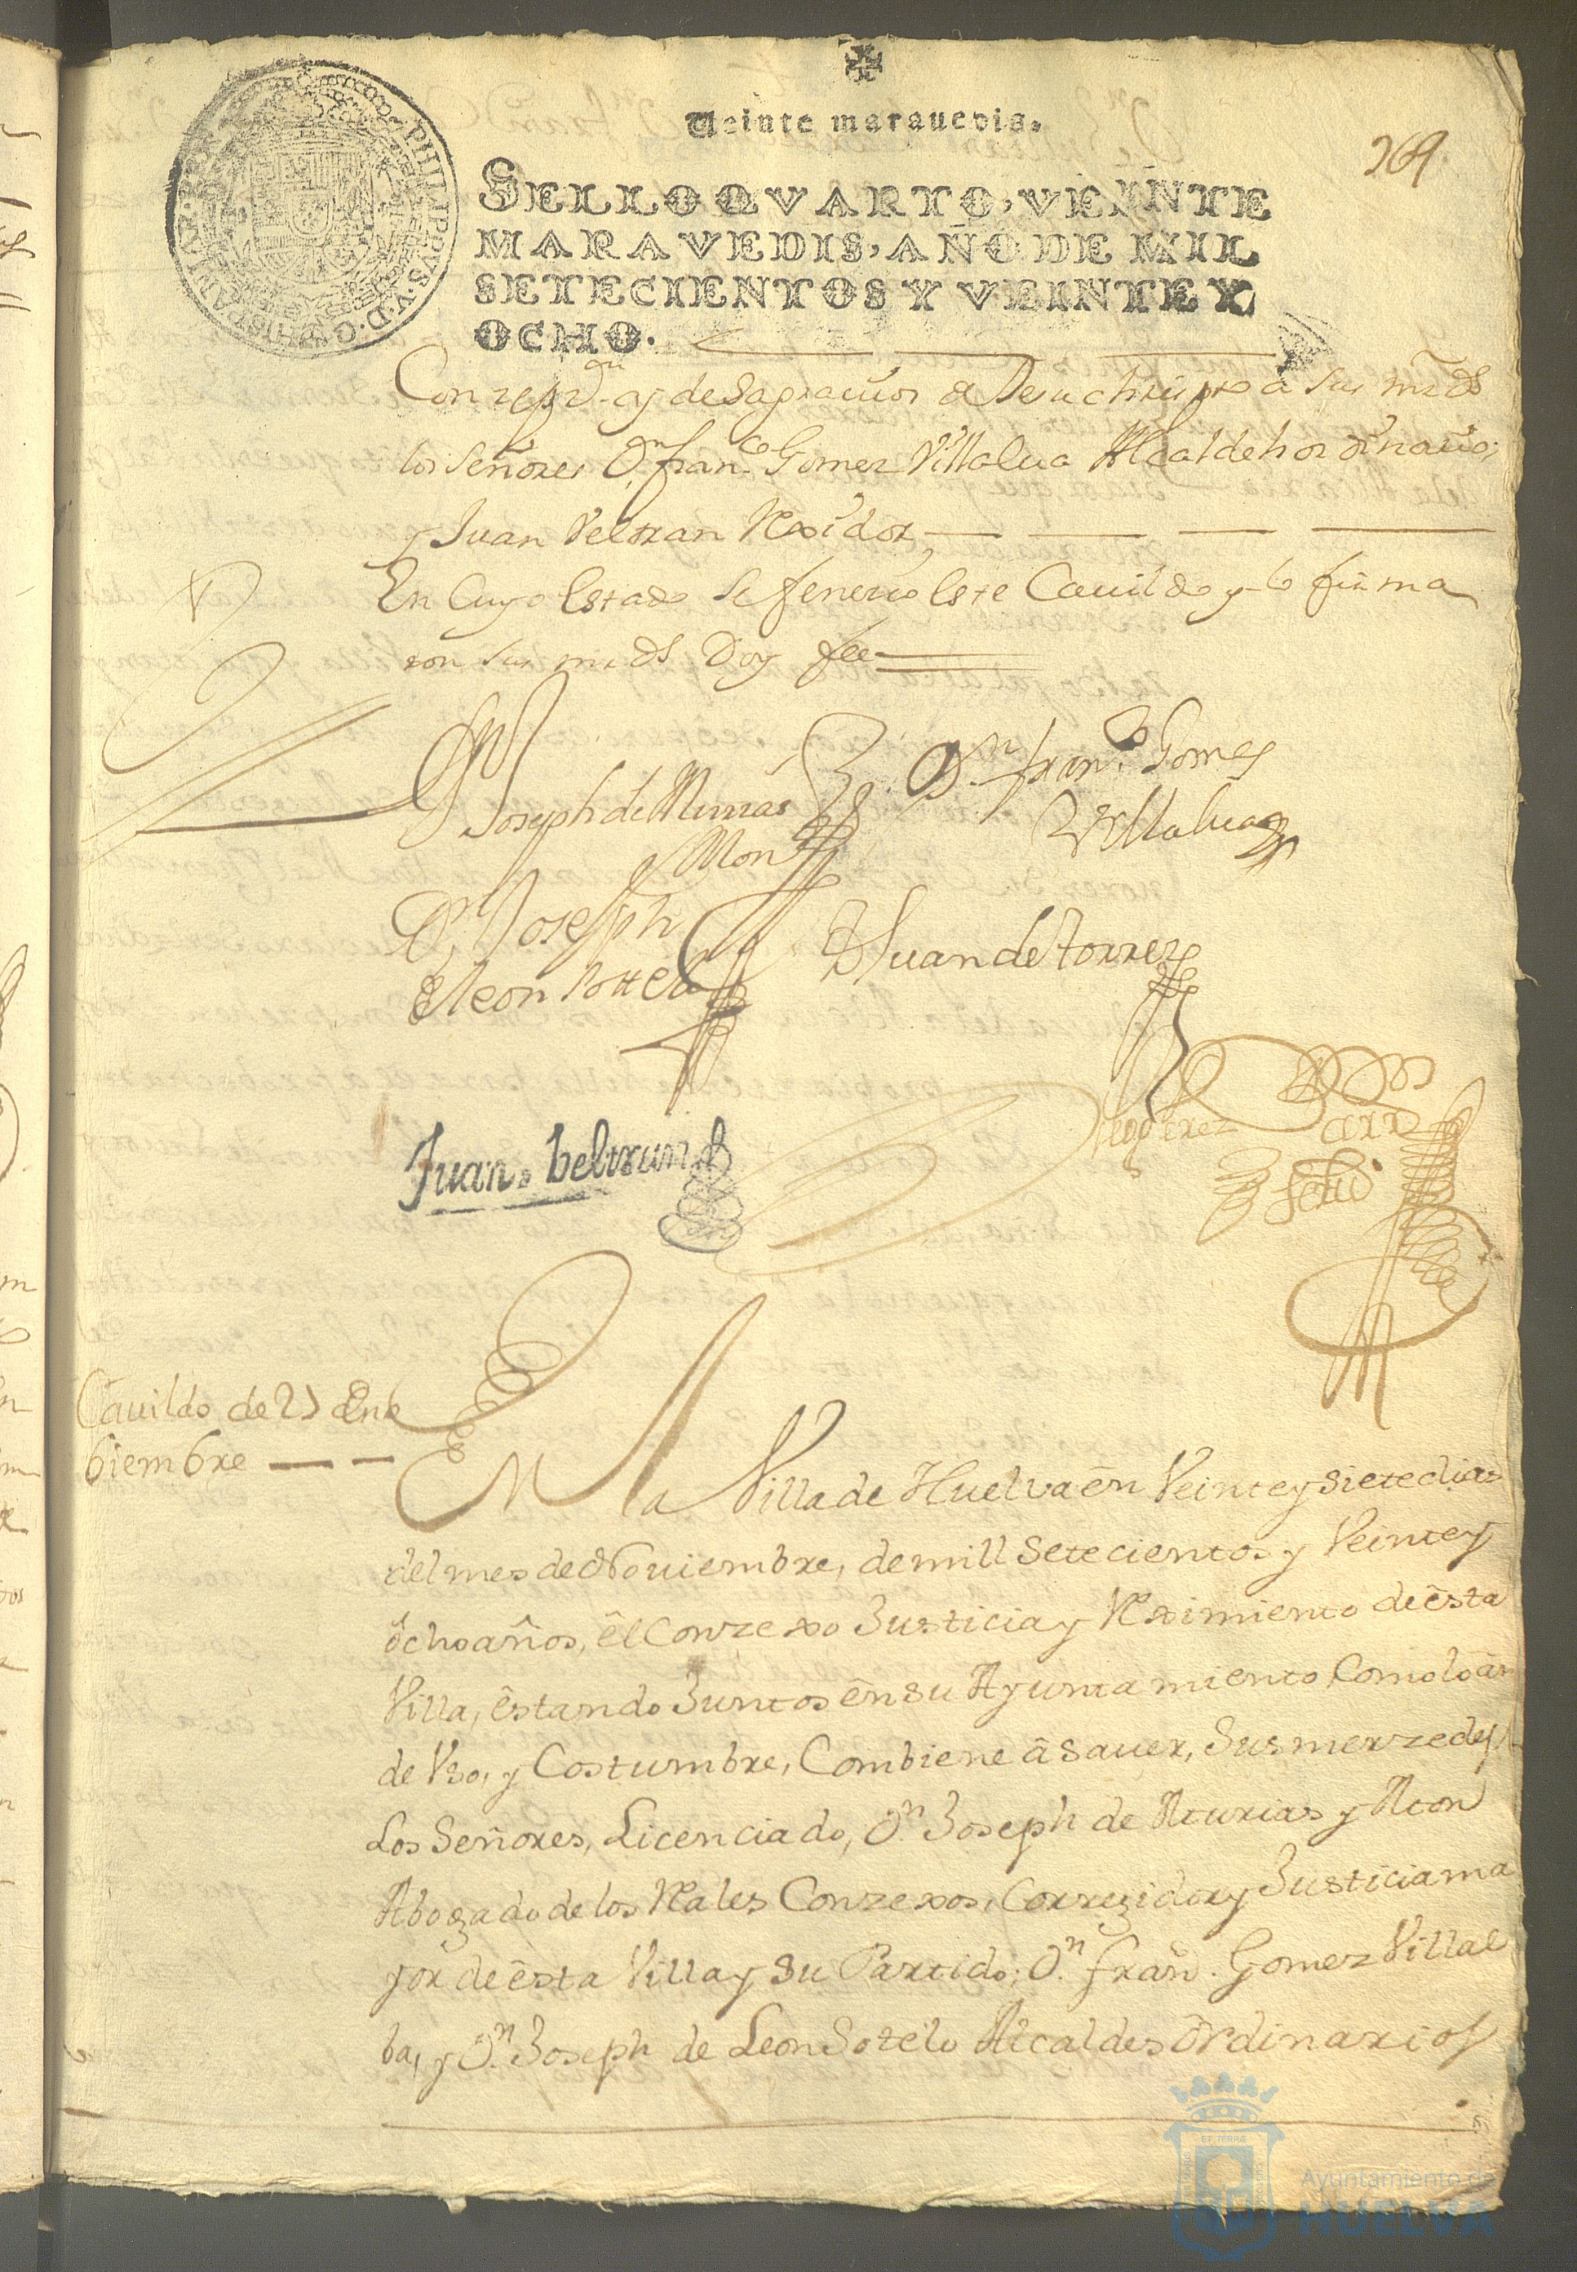 Veinte marauedis.
SELLO QVARTO, VEINTE
MARAVEDIS, AÑO DE MIL
SETECIENTOS Y VEINTE Y
OCHO.
PHILIPPVS. V. D. G. HISPANIAR.
269
a sus mrds
los señores Dn. Franco. Gomez Villalua Alcalde hordinario;
y Juan Veltran Rexidor
En Cuyo estado se fenecio este Cauildo y lo firma
ron sus mrds Doy fee
Dn. Franco. Gomes
Villalua
Joseph de
Dn. Joseph
Juan de torres
de leon sottelo
Juan. beltran
Cauildo de 27 de No
biembre
En la Villa de Huelva ên Veinte y siete dias
del mes de Nouiembre, de mill setecientos y Veinte y
ôcho años, êl Conzexo Justicia y Reximiento de êsta
Villa, êstando Juntos ên su Ayuntamiento Como lo an
de Vso, y Costumbre, Combiene â sauer, Sus merzedes
Los Señores, Licenciado, Dn. Joseph de Aturias y Mon
Abogado de los Rales Conzexos, Corregidor y Justicia ma
yor de êsta Villa y su Partido; Dn. Fran. Gomez Villal
ba, y Dn. Joseph de Leon Sotelo Alcaldes Ordinarios
Ayuntamiento de
HUELVA